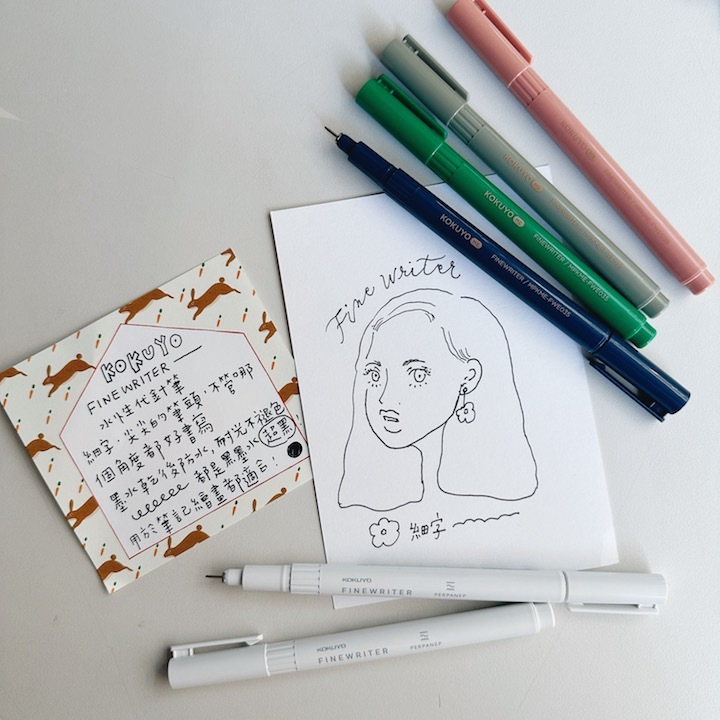 KOKUYO
FINEWRITER
水性代針筆
細字、尖尖的筆頭,不管哪
個角度都好書寫
墨水乾後防水,耐光不褪色
都是黑墨水 超黑
用於筆記繪畫都適合!
Fine Writer
細字
KOKUYO ME
KOKUYO ME FINEWRITER / MPKME-FWE03S
KOKUYO ME FINEWRITER / MPKME-FWE03S
KOKUYO ME
KOKUYO
FINEWRITER PERPANEP
KOKUYO
FINEWRITER PERPANEP